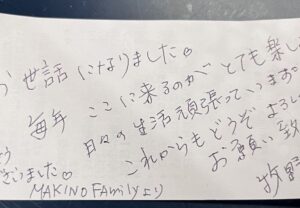 お世話になりました。
毎年 ここに来るのが とても楽し
日々の生活頑張っています。
これからもどうぞよろし
お願い致
ございました。
MAKINO Familyより
牧野